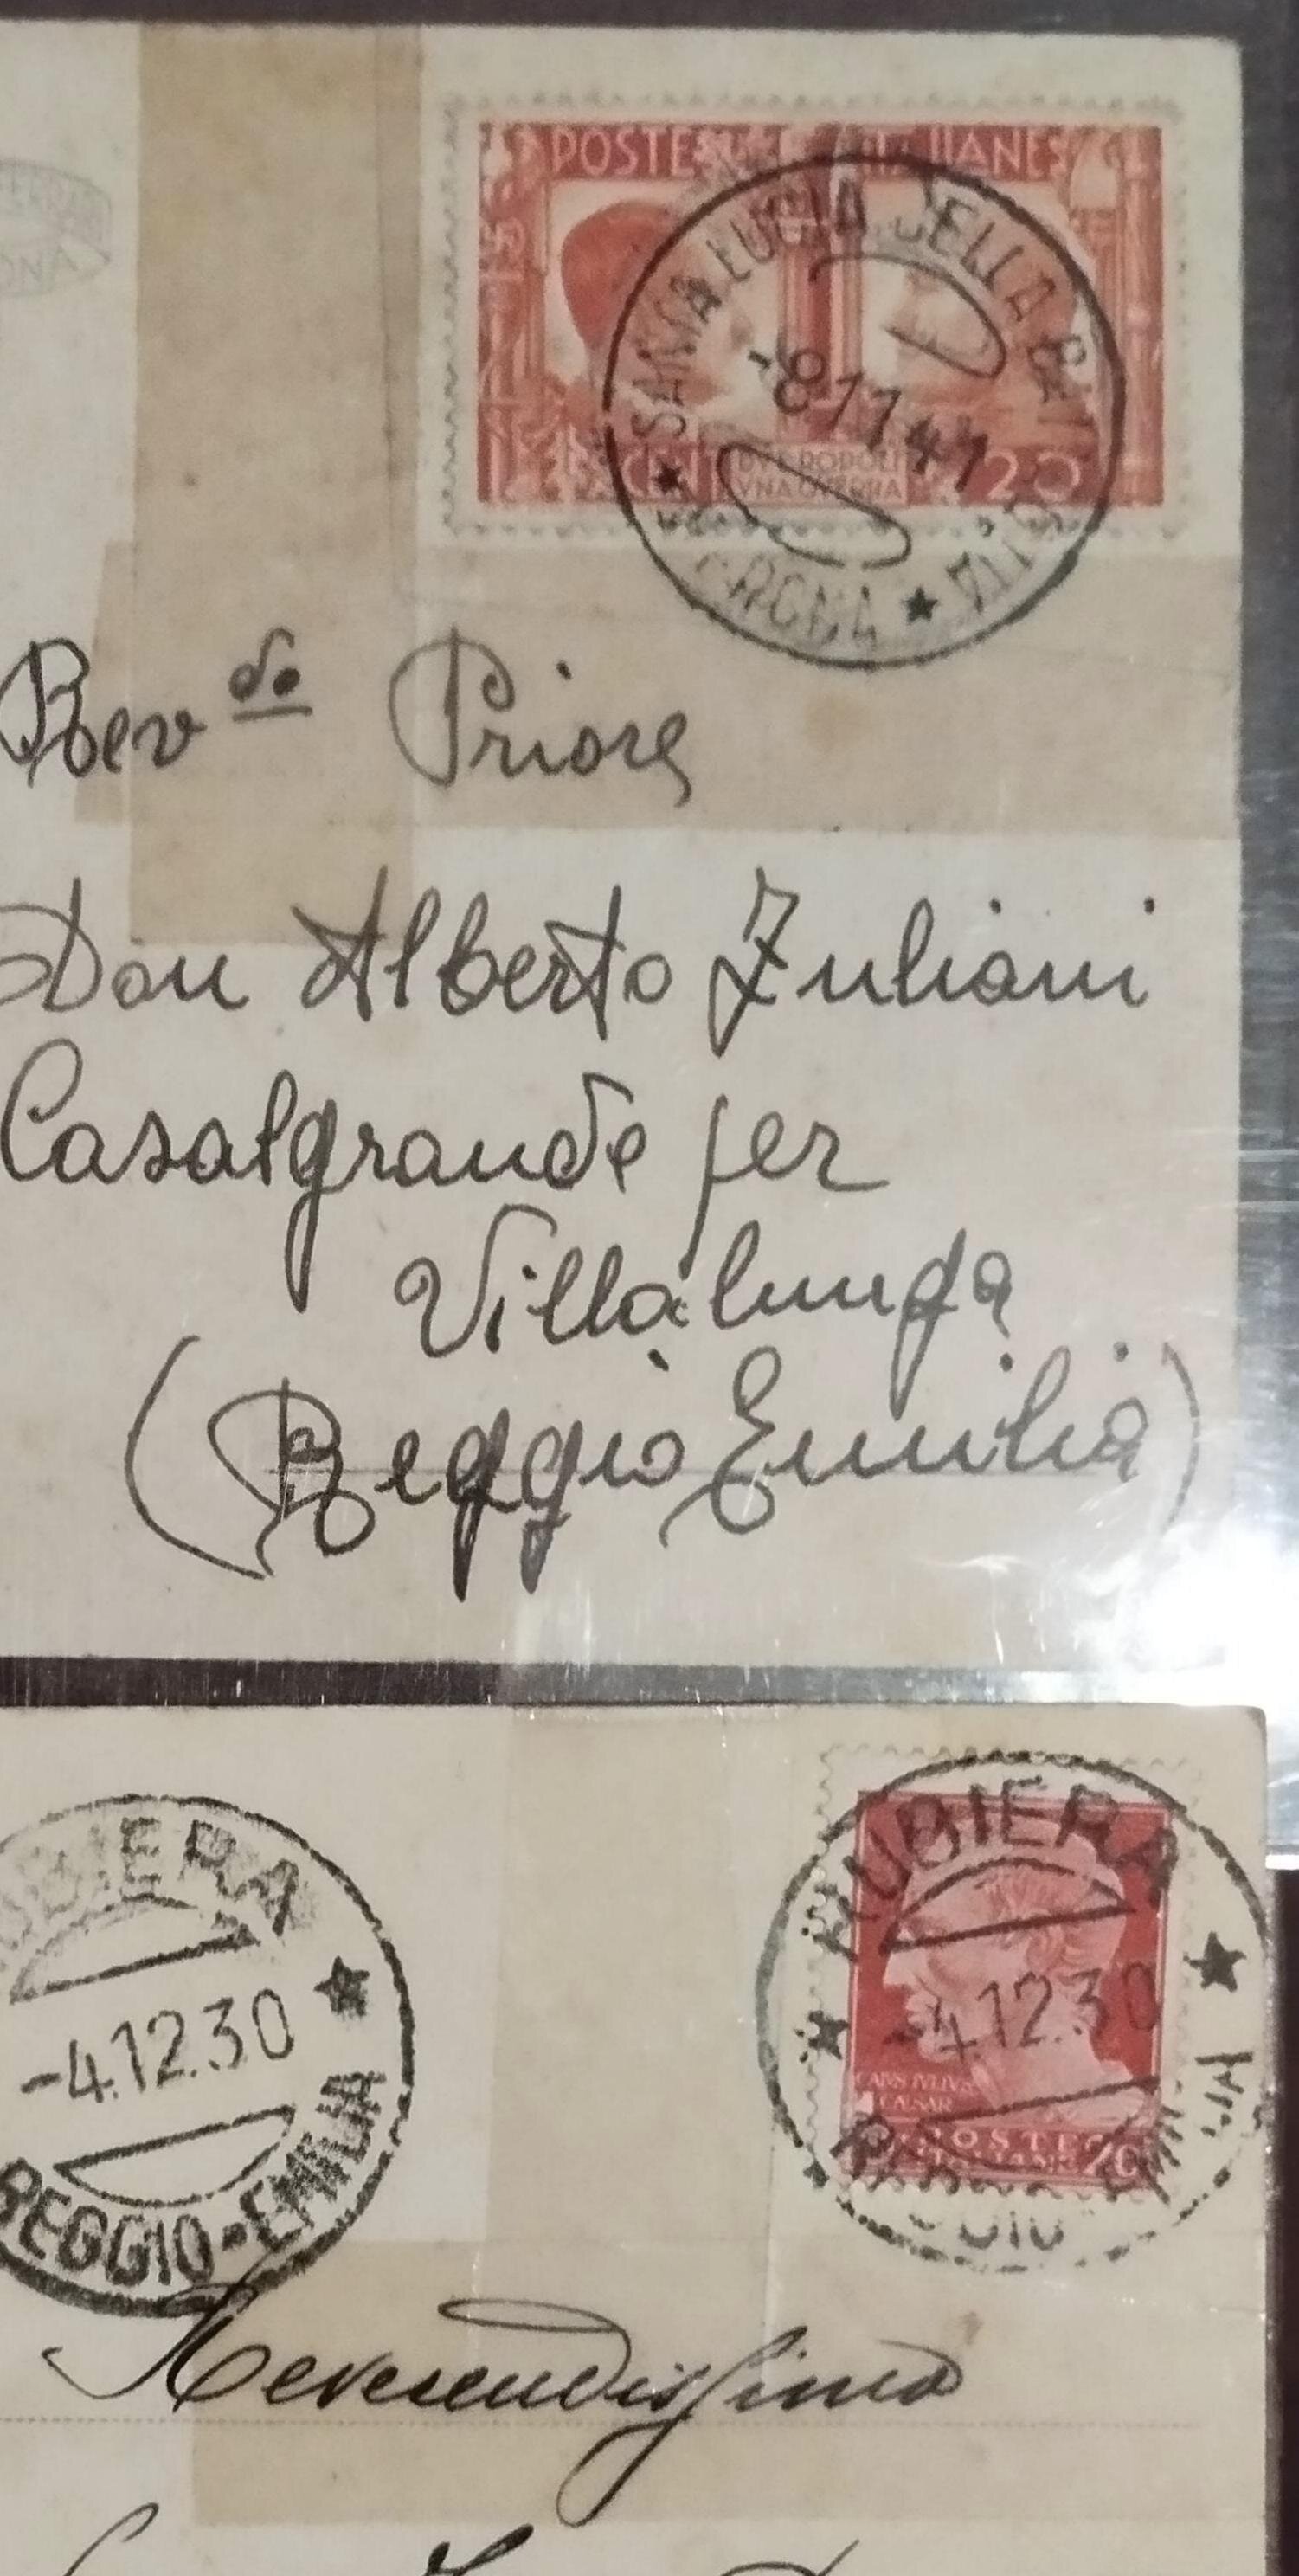 POSTE ITALIANE
SANTA LUCIA DELLA BATTAGLIA
-8 1 1 41
CENT DVE POPOLI 20
VNA GVERRA
VERONA
Rev do Priore
Don Alberto Zuliani
Casalgrande per
Villalunga
(Reggio Emilia)
RUBIERA
-4.12.30
REGGIO-EMILIA
RUBIERA
-4.12.30
CAIVS IVLIVS
CAESAR
POSTE
ITALIANE 20
Reverendissimo